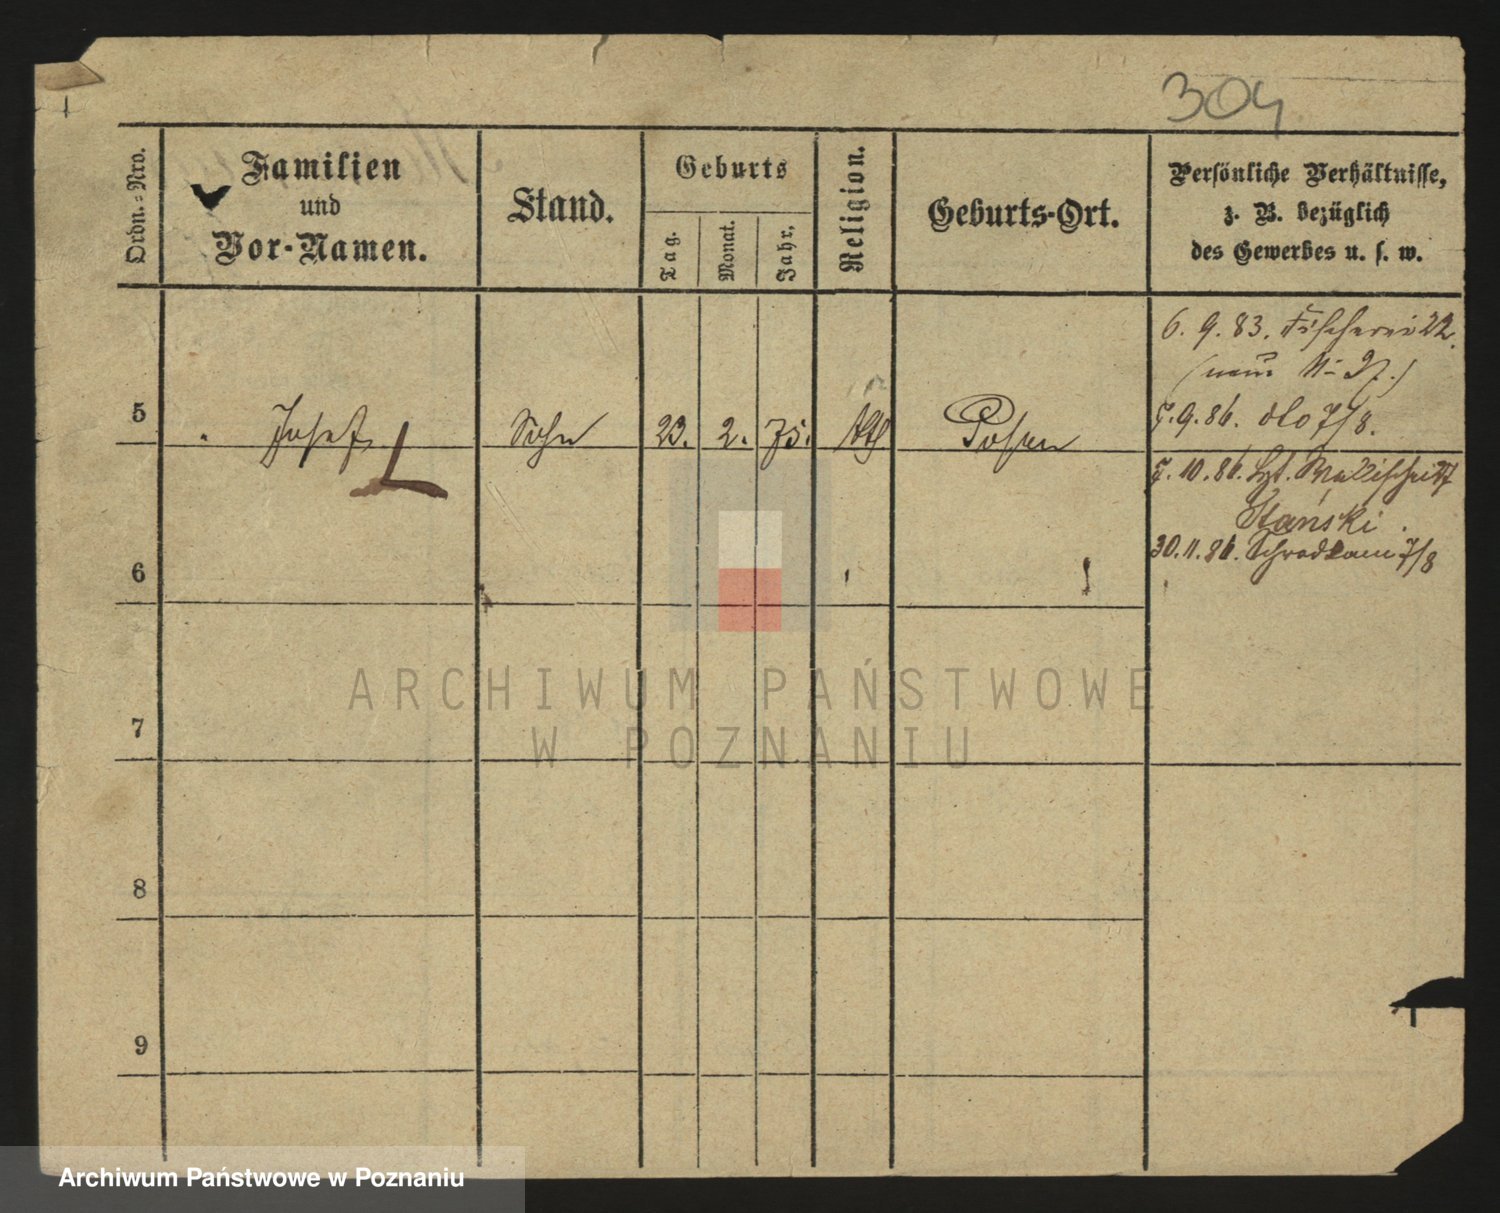 304
Ordn.-Nro.
Familien
und
Vor-Namen.
Stand.
Geburts
Tag.
Monat.
Jahr.
Religion.
Geburts-Ort.
Persönliche Verhältnisse,
z. B. bezüglich
des Gewerbes u. s. w.
6. 9. 83. Fischerei 22.
5
" Josef
Sohn
23.
2.
75.
kth
Posen
7. 9. 86. dto 7/8.
7. 10. 86. Wallischei
Stański.
30. 11. 86. Schrodkam 7/8
6
7
8
9
ARCHIWUM PAŃSTWOWE
W POZNANIU
Archiwum Państwowe w Poznaniu